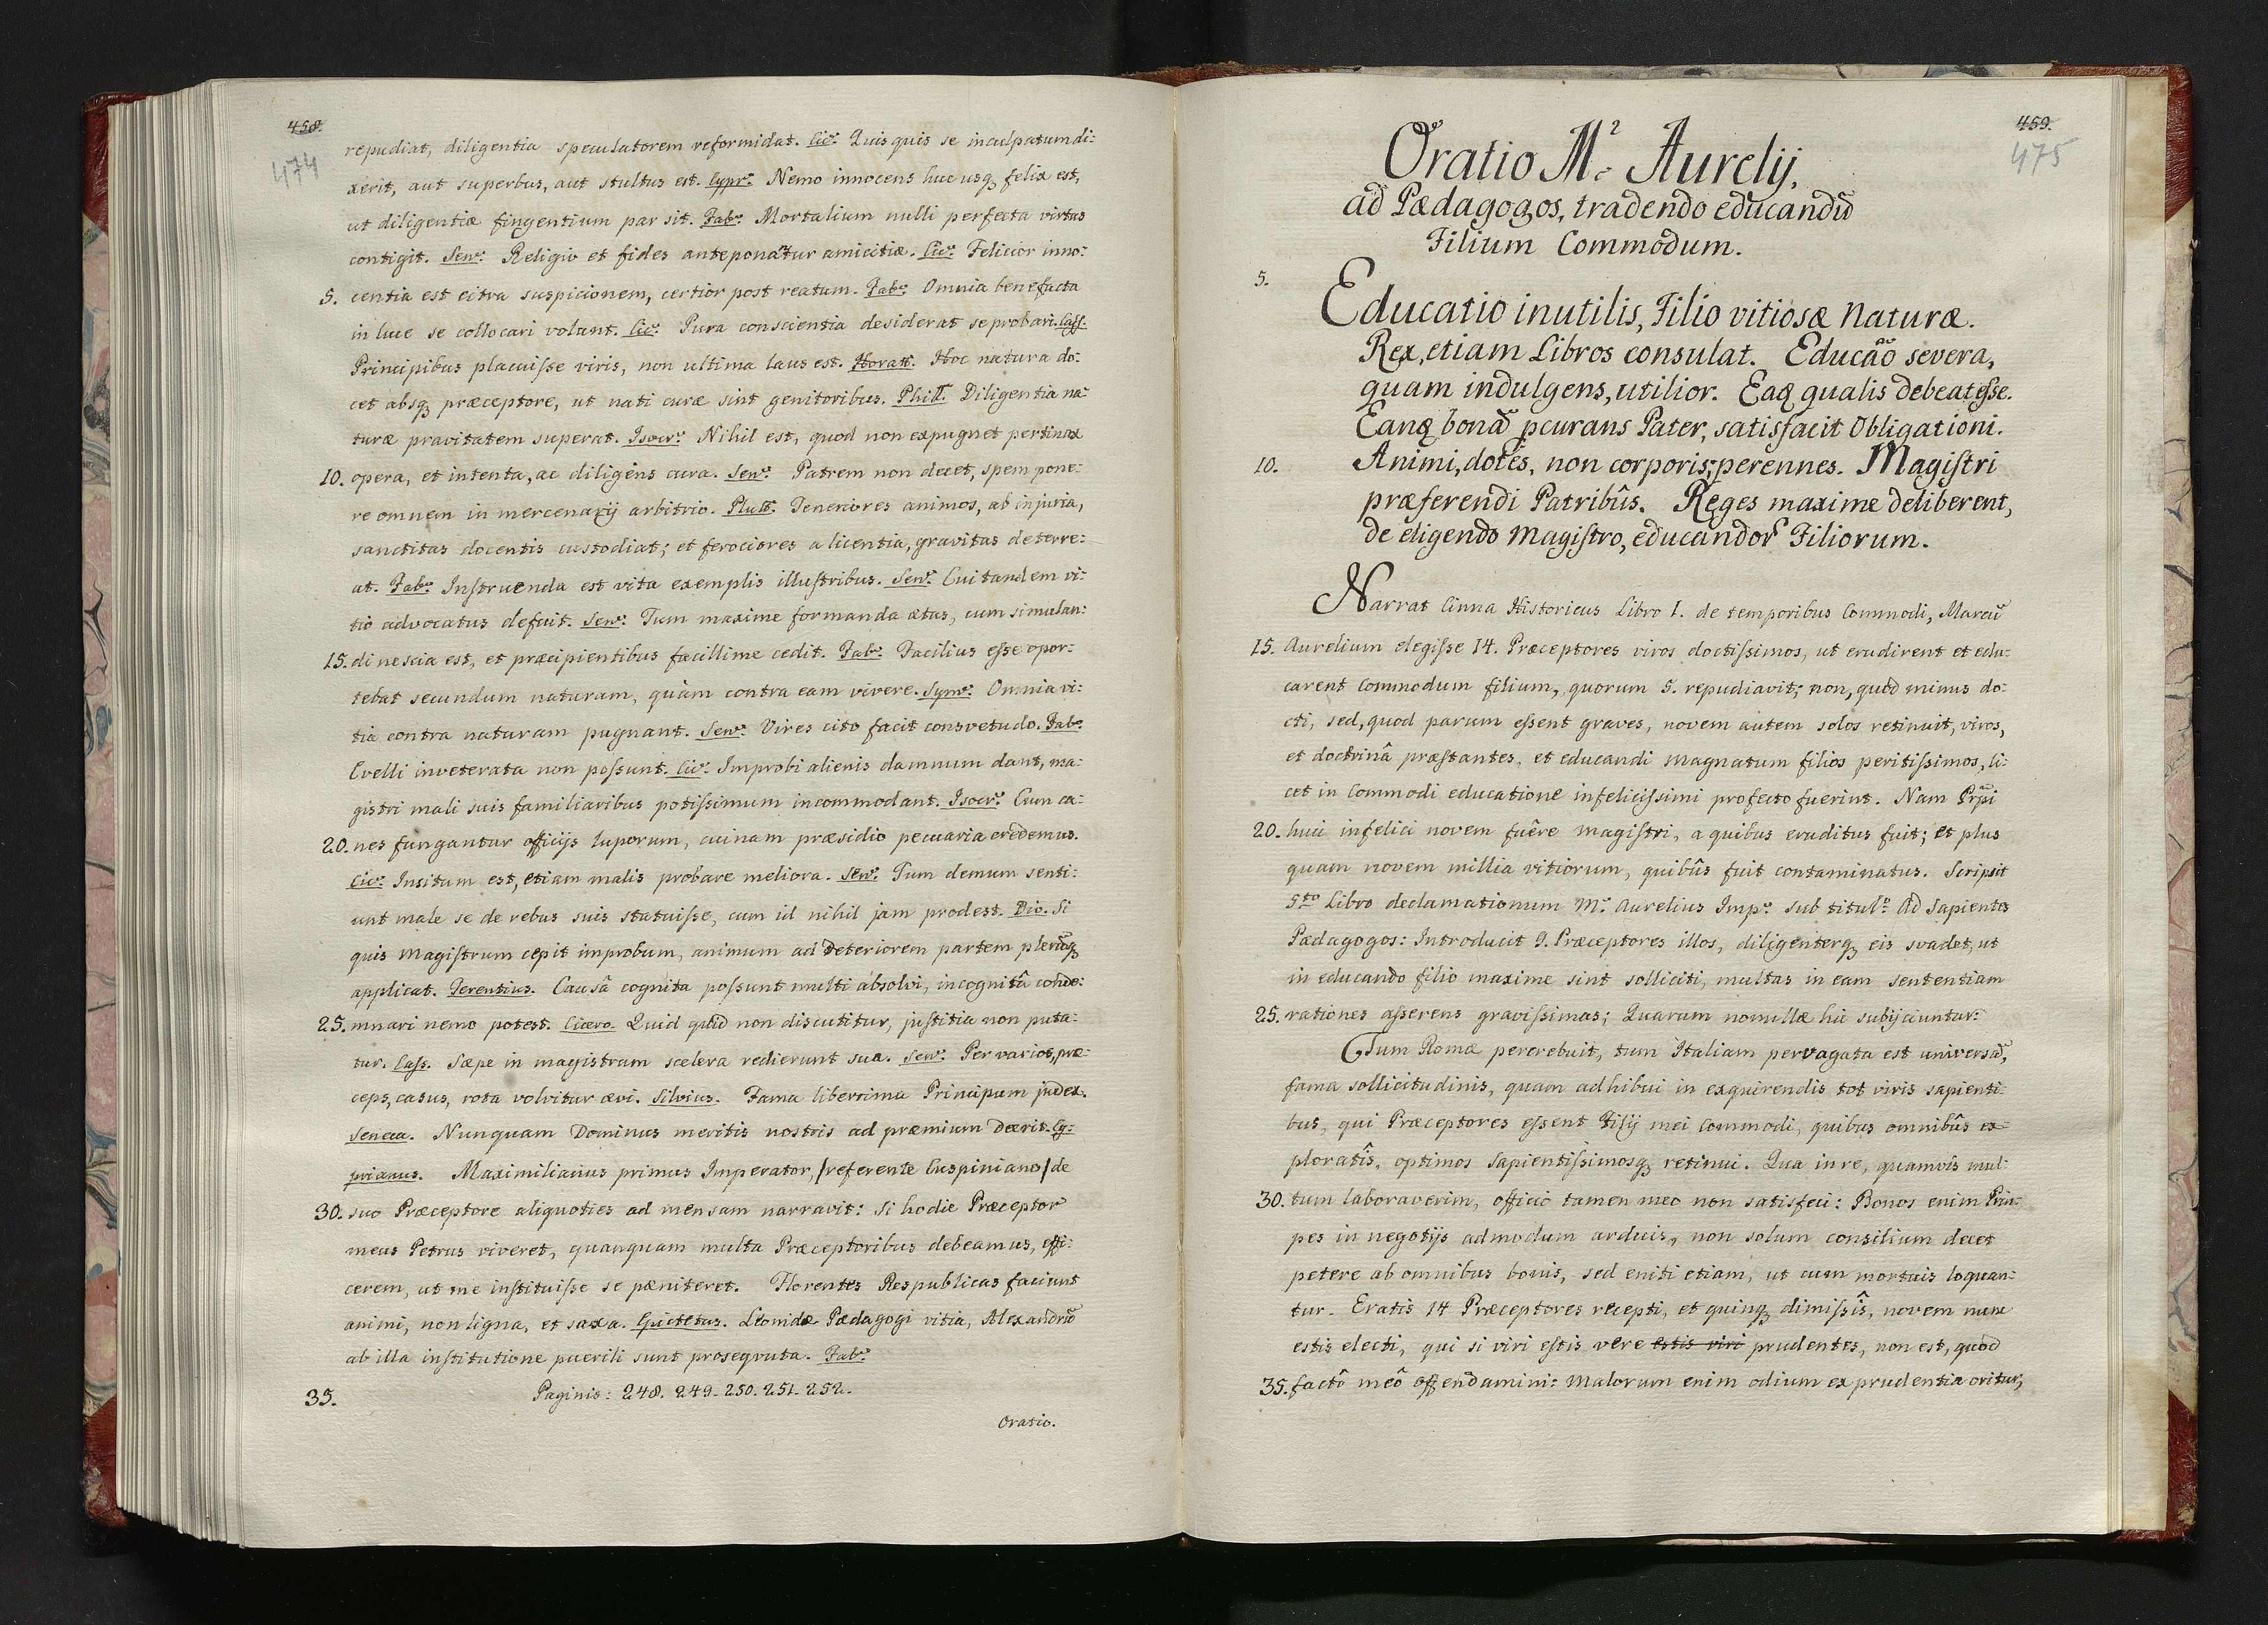 458.
474
repudiat, diligentia speculatorem reformidat. Cic: Quisquis se inculpatum di:
xerit, aut superbus, aut stultus est. Cypr: Nemo innocens huc usq, felix est,
ut diligentiæ fingentium par sit. Fab: Mortalium nulli perfecta virtus
contigit. Sen: Religio et fides anteponatur amicitiæ. Cic: Felicior inno:
5. centia est citra suspicionem, certior post reatum. Fab: Omnia benefacta
in luce se collocari volunt. Cic: Pura conscientia desiderat se probari. Cass.
Principibus placuisse viris, non ultima laus est. Horat: Hoc natura do:
cet absq, præceptore, ut nati curæ sint genitoribus. Phil: Diligentia na:
turæ pravitatem superat. Isocr: Nihil est, quod non expugnet pertinax
10. opera, et intenta, ac diligens cura. Sen: Patrem non decet, spem pone:
re omnem in mercenarij arbitrio. Plut: Teneriores animos, ab injuria,
sanctitas docentis custodiat; et ferociores a licentia, gravitas deterre:
at. Fab: Instruenda est vita exemplis illustribus. Sen: Cui tandem vi:
tio advocatus defuit. Sen: Tum maxime formanda ætas, cum simulan:
15. di nescia est, et præcipientibus facillime cedit. Fab: Facilius esse opor:
tebat secundum naturam, quàm contra eam vivere. Sym: Omnia vi:
tia contra naturam pugnant. Sen: Vires cito facit consvetudo. Fab:
Evelli inveterata non possunt. Cic: Improbi alienis damnum dant, ma:
gistri mali suis familiaribus potissimum incommodant. Isocr: Cum ca:
20. nes fungantur officijs luporum, cuinam præsidio pecuaria credemus.
Cic: Insitum est, etiam malis probare meliora. Sen: Tum demum senti:
unt male se de rebus suis statuisse, cum id nihil jam prodest. Dio. Si
quis Magistrum cepit improbum, animum ad deteriorem partem plerũq,
applicat. Terentius. Causâ cognita possunt multi absolvi, incognitâ conde:
25. mnari nemo potest. Cicero. Quid quid non discutitur, justitia non puta:
tur. Cass. Sæpe in magistrum scelera redierunt sua. Sen: Per varios, præ:
ceps, casus, rota volvitur ævi. Silvius. Fama liberrima Principum judex.
Seneca. Nunquam Dominus meritis nostris ad præmium deerit. Cy:
prianus. Maximilianus primus Imperator, /referente Cuspiniano/ de
30. suo Præceptore aliquoties ad mensam narravit: Si hodie Præceptor
meus Petrus viveret, quanquam multa Præceptoribus debeamus, effi:
cerem, ut me instituisse se pæniteret. Florentes Respublicas faciunt
animi, non ligna, et saxa. Epictetus. Leonidæ Pædagogi vitia, Alexandrũ
ab illa institutione puerili sunt proseqvuta. Fab:
35. Paginis: 248. 249. 250. 251. 252.
Oratio.
459.
475
Oratio M. Aurelij,
ad Pædagogos, tradendo educandũ
Filium Commodum.
5.
Educatio inutilis, Filio vitiosæ Naturæ.
Rex, etiam Libros consulat. Educão severa,
quam indulgens, utilior. Eaq qualis debeat esse.
Eanq bonã pcurans Pater, satisfacit Obligationi.
10. Animi, dotes, non corporis, perennes. Magistri
præferendi Patribûs. Reges maxime deliberent,
de eligendo Magistro, educandor Filiorum.
Narrat Cinna Historicus Libro I. de temporibus Commodi, Marcũ
15. Aurelium elegisse 14. Præceptores viros doctissimos, ut erudirent et edu:
carent Commodum filium, quorum 5. repudiavit; non, quòd minus do:
cti, sed, quod parum essent graves, novem autem solos retinuit, viros,
et doctrinâ præstantes, et educandi Magnatum filios peritissimos, li:
cet in Commodi educatione infelicissimi profecto fuerint. Nam Prpi
20. huic infelici novem fuêre magistri, a quibus eruditus fuit; et plus
quam novem millia vitiorum, quibûs fuit contaminatus. Scripsit
5to Libro declamationum M. Aurelius Imp: sub titul: Ad Sapientes
Pædagogos: Introducit 9. Præceptores illos, diligenterq, eis svadet, ut
in educando filio maxime sint solliciti, multas in eam sententiam
25. rationes asserens gravissimas; Quarum nonullæ hic subijciuntur:
Tum Romæ percrebuit, tum Italiam pervagata est universã,
fama sollicitudinis, quam adhibui in exquirendis tot viris sapienti:
bus, qui Præceptores essent filij mei Commodi, quibus omnibûs ex:
ploratîs, optimos sapientissimosq, retinui. Qua in re, quamvis mul:
30. tum laboraverim, officio tamen meo non satisfeci: Bonos enim Prin:
pes in negotijs admodum arduis, non solum consilium decet
petere ab omnibus bonis, sed eniti etiam, ut cum mortuis loquan:
tur. Eratis 14 Præceptores recepti, et quinq, dimissîs, novem nunc
estis electi, qui si viri estis vere estis viri prudentes, non est, quòd
35. factô meô offendamini: Malorum enim odium ex prudentia oritur,